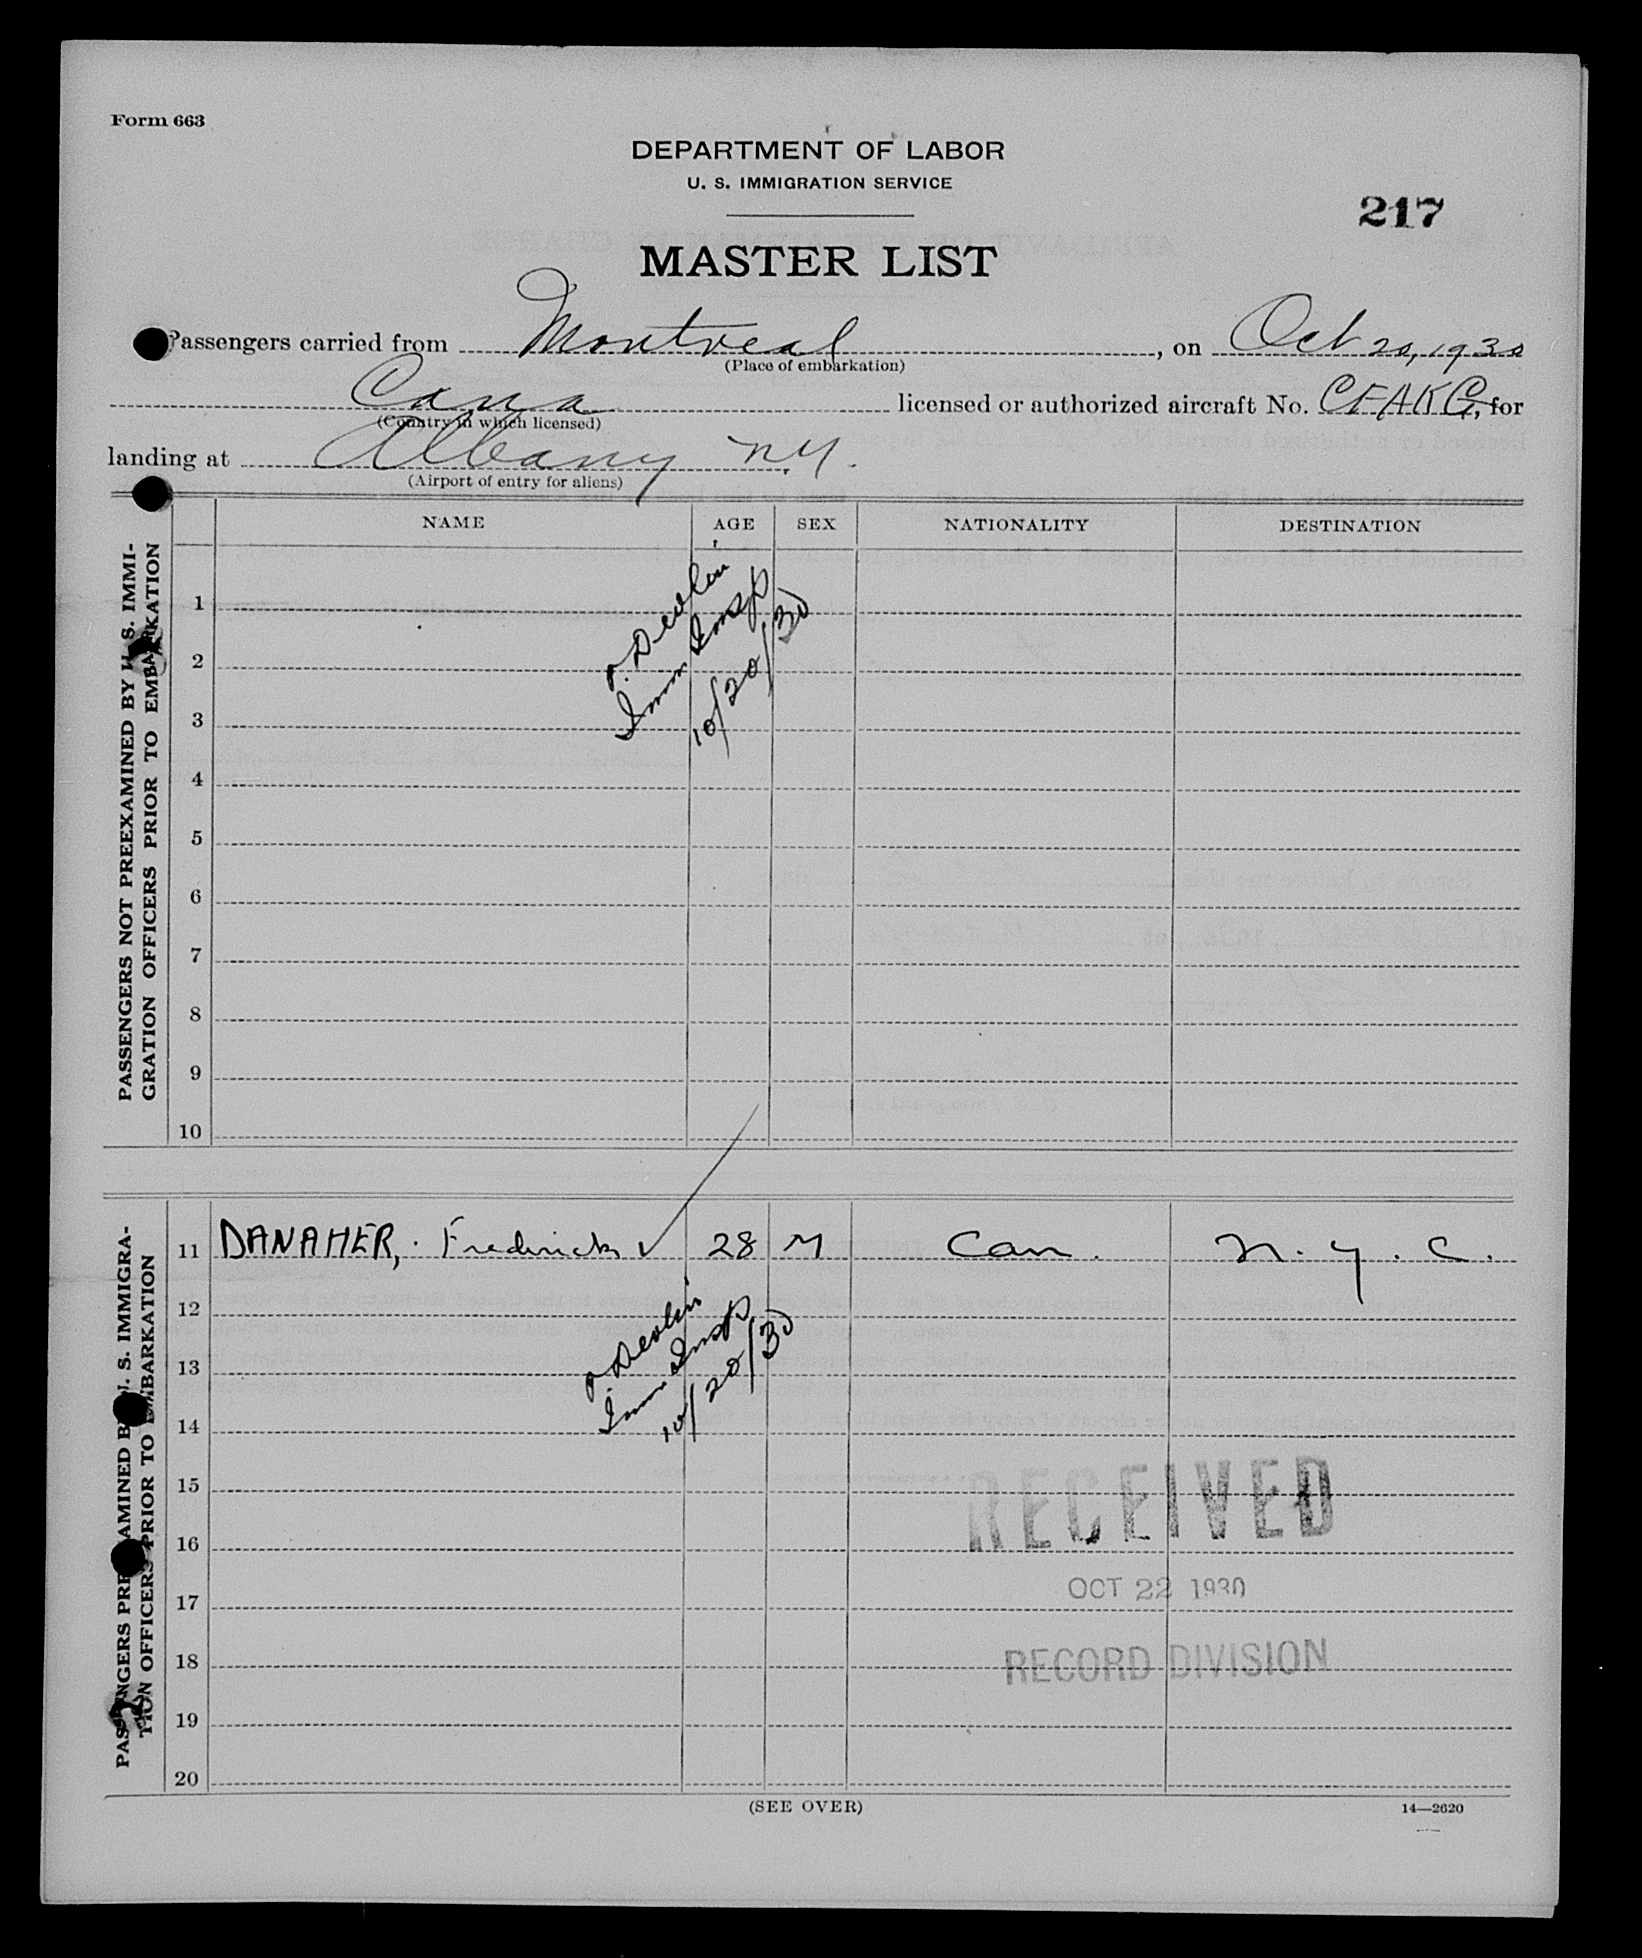 Form 663
DEPARTMENT OF LABOR
U. S. IMMIGRATION SERVICE
217
MASTER LIST
Passengers carried from Montreal, on Oct 20, 1930
(Place of embarkation)
Cana licensed or authorized aircraft No. CFAKG, for
(Country in which licensed)
landing at Albany N.Y.
(Airport of entry for aliens)
NAME AGE SEX NATIONALITY DESTINATION
PASSENGERS NOT PREEXAMINED BY U. S. IMMI-
GRATION OFFICERS PRIOR TO EMBARKATION
1
2
3
4
5
6
7
8
9
10
Devlin
Imm Insp
10/20/30
PASSENGERS PREEXAMINED BY U. S. IMMIGRA-
TION OFFICERS PRIOR TO EMBARKATION
11 DANAHER, Frederick 28 M Can. N.Y.C.
12
13
14
15
16
17
18
19
20
Devlin
Imm Insp
10/20/30
RECEIVED
OCT 22 1930
RECORD DIVISION
(SEE OVER)
14—2620